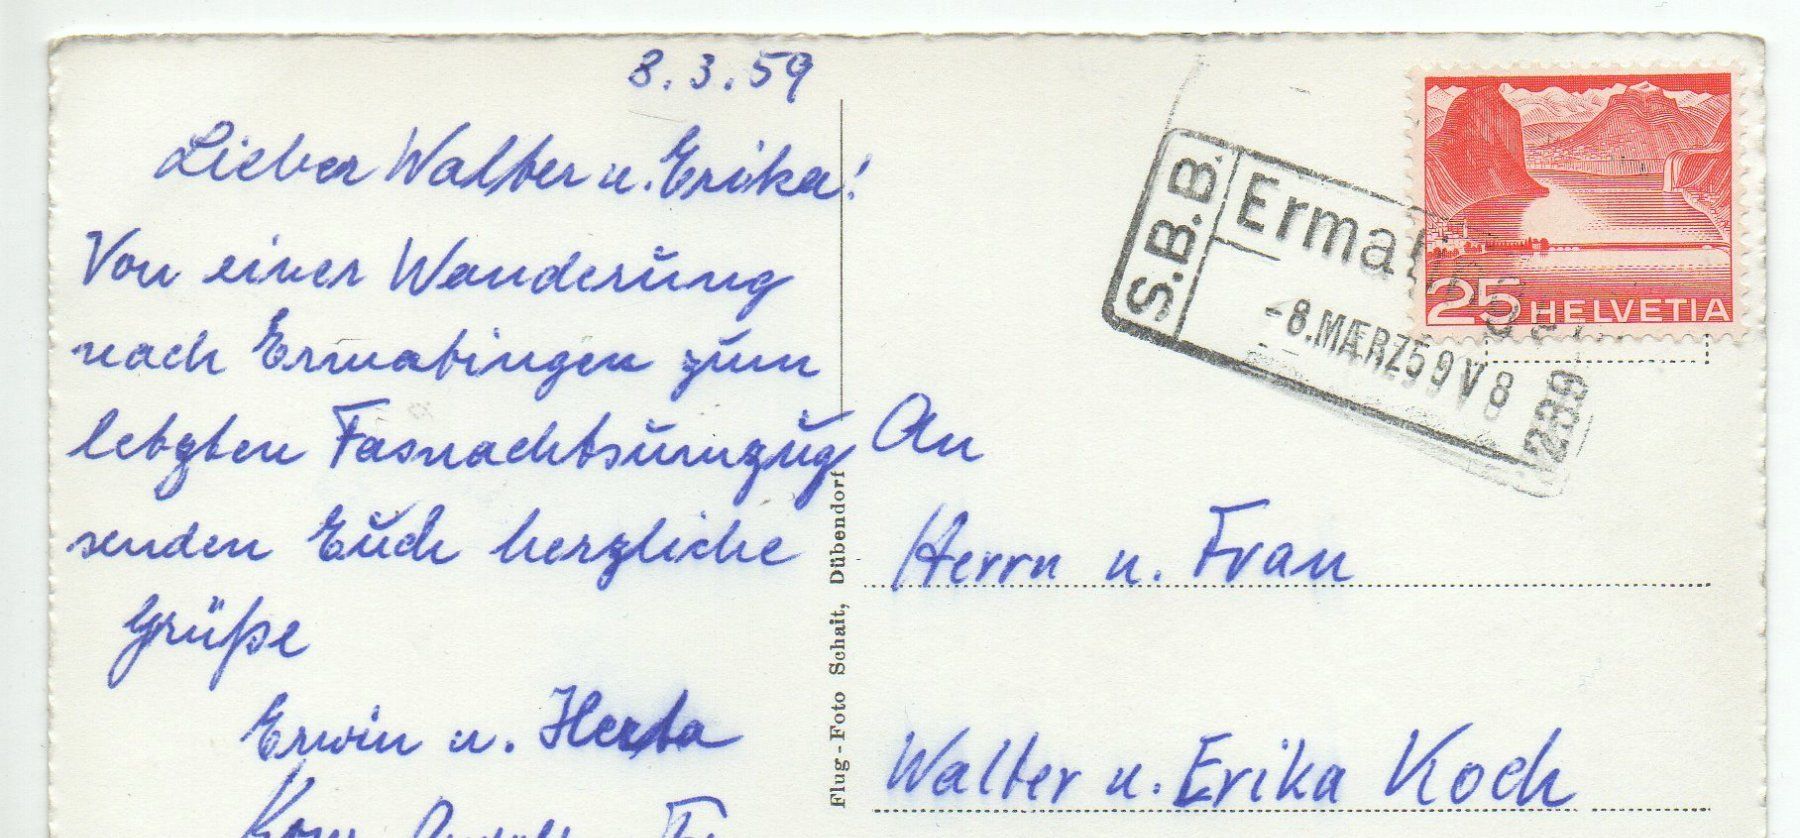 8.3.59
Lieber Walter u. Erika!
Von einer Wanderung
nach Ermatingen zum
letzten Fasnachtsumzug
senden Euch herzliche
Grüße
Erwin u. Herta
Flug-Foto Schait, Dübendorf
S.B.B.
Ermatingen
-8.MÆRZ59 V8
239
25 HELVETIA
An
Herrn u. Frau
Walter u. Erika Koch